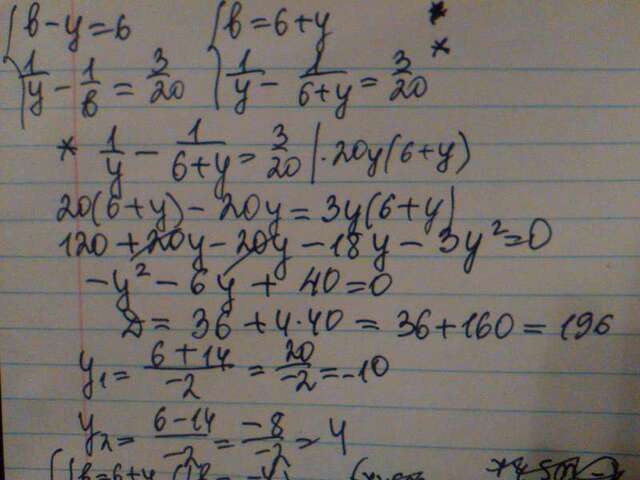 {в-y=6 {в=6+y *
{1/y - 1/в = 3/20 {1/y - 1/(6+y) = 3/20 *
* 1/y - 1/(6+y) = 3/20 |·20y(6+y)
20(6+y)-20y=3y(6+y)
120+20y-20y-18y-3y²=0
-y²-6y+40=0
D=36+4·40=36+160=196
y₁=(6+14)/-2=20/-2=-10
y₂=(6-14)/-2=-8/-2=4
{{в=6+y